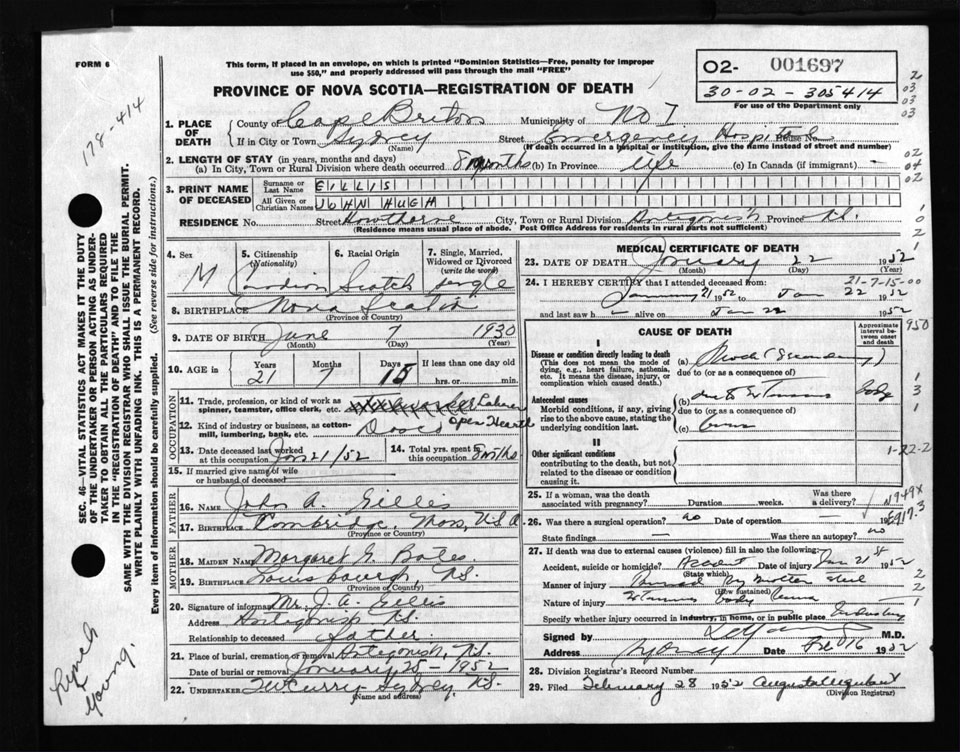 FORM 6
This form, if placed in an envelope, on which is printed "Dominion Statistics—Free, penalty for improper
use $50," and properly addressed will pass through the mail "FREE"
PROVINCE OF NOVA SCOTIA—REGISTRATION OF DEATH
O2- 001697
30-02-305414
For use of the Department only
178-414
1. PLACE OF DEATH
County of Cape Breton Municipality of No I
If in City or Town Sydney Street Emergency Hospital House No.
(Name) (If death occurred in a hospital or institution, give the name instead of street and number)
2. LENGTH OF STAY (in years, months and days)
(a) In City, Town or Rural Division where death occurred 8 months (b) In Province Life (c) In Canada (if immigrant) -
3. PRINT NAME OF DECEASED
Surname or Last Name GILLIS
All Given or Christian Names JOHN HUGH
RESIDENCE No. Street Hawthorne City, Town or Rural Division Antigonish Province N.S.
(Residence means usual place of abode. Post Office Address for residents in rural parts not sufficient)
4. Sex M
5. Citizenship (Nationality) Canadian
6. Racial Origin Scotch
7. Single, Married, Widowed or Divorced (write the word) Single
8. BIRTHPLACE Nova Scotia
(Province or Country)
9. DATE OF BIRTH June 7 1930
(Month) (Day) (Year)
10. AGE in Years 21 Months 7 Days 15 If less than one day old
hrs. or min.
OCCUPATION
11. Trade, profession or kind of work as spinner, teamster, office clerk, etc. Laborer
12. Kind of industry or business, as cotton-mill, lumbering, bank, etc. Dosco Open Hearth
13. Date deceased last worked at this occupation Jan 21/52
14. Total yrs. spent in this occupation 8 mths
15. If married give name of wife or husband of deceased
FATHER
16. NAME John A. Gillis
17. BIRTHPLACE Cambridge, Mass, USA
(Province or Country)
MOTHER
18. MAIDEN NAME Margaret G. Bates
19. BIRTHPLACE Louisbourg, N.S.
(Province or Country)
20. Signature of informant Mr. J. A. Gillis
Address Antigonish N.S.
Relationship to deceased Father.
21. Place of burial, cremation or removal Antigonish, N.S.
Date of burial or removal January 25 - 1952
22. UNDERTAKER T W Curry Sydney N.S.
(Name and address)
MEDICAL CERTIFICATE OF DEATH
23. DATE OF DEATH January 22 1952
(Month) (Day) (Year)
21-7-15-00
24. I HEREBY CERTIFY that I attended deceased from:
January 21 1952 to Jan 22 1952
and last saw h alive on Jan 22 1952
CAUSE OF DEATH
Approximate interval between onset and death
I
Disease or condition directly leading to death
(This does not mean the mode of dying, e.g., heart failure, asthenia, etc. It means the disease, injury, or complication which caused death.)
(a) Shock (Secondary)
due to (or as a consequence of)
Antecedent causes
Morbid conditions, if any, giving rise to the above cause, stating the underlying condition last.
(b)
due to (or as a consequence of)
(c) Burns
II
Other significant conditions
contributing to the death, but not related to the disease or condition causing it.
25. If a woman, was the death associated with pregnancy? Duration weeks. Was there a delivery?
26. Was there a surgical operation? no Date of operation — 19
State findings — Was there an autopsy? no
27. If death was due to external causes (violence) fill in also the following:
Accident, suicide or homicide? Accident Date of injury Jan 21st 1952
(State which)
Manner of injury Burned by Molten Steel
(How sustained)
Nature of injury
Specify whether injury occurred in industry, in home, or in public place Industry
Signed by M.D.
Address Sydney Date Feb 16 1952
28. Division Registrar's Record Number
29. Filed February 28 1952
(Division Registrar)
SEC. 46—VITAL STATISTICS ACT MAKES IT THE DUTY
OF THE UNDERTAKER OR PERSON ACTING AS UNDER-
TAKER TO OBTAIN ALL THE PARTICULARS REQUIRED
IN THE "REGISTRATION OF DEATH" AND TO FILE THE
SAME WITH THE DIVISION REGISTRAR WHO SHALL ISSUE THE BURIAL PERMIT.
WRITE PLAINLY WITH UNFADING INK. THIS IS A PERMANENT RECORD.
Every item of information should be carefully supplied. (See reverse side for instructions.)
Lynch
Young.